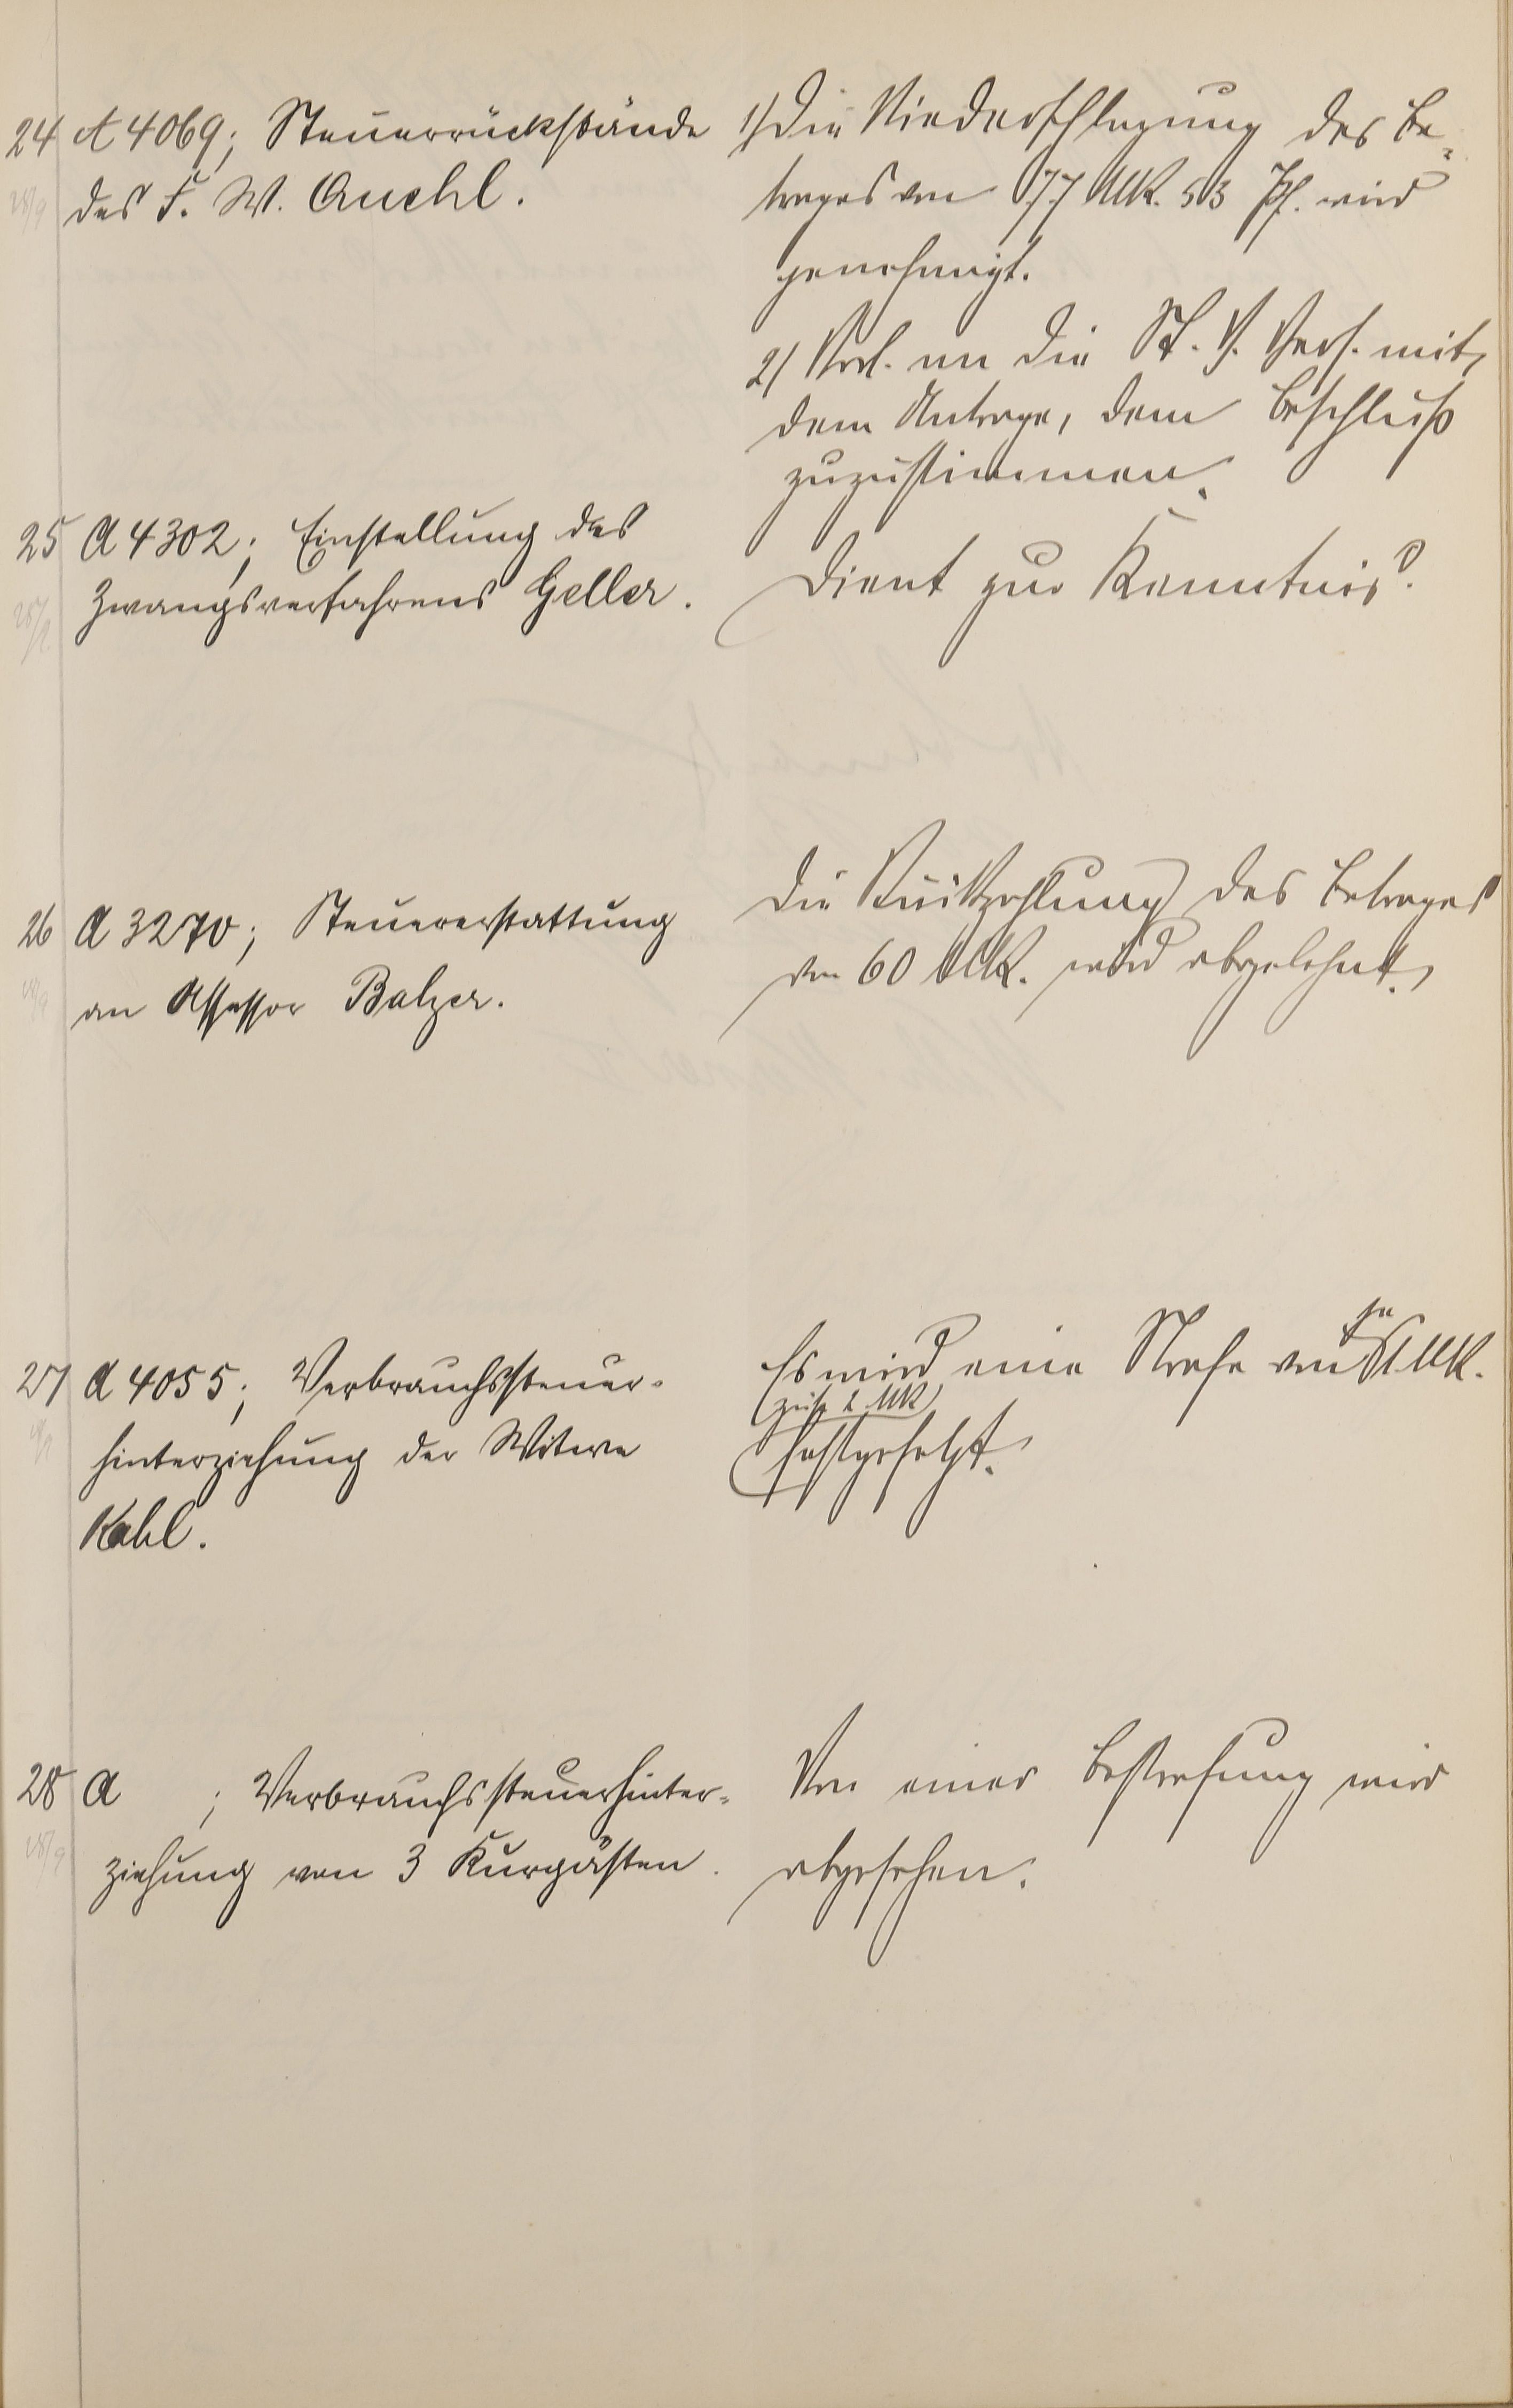 24 A 4069; Steuerrückstände
des F. W. Quehl.
1) Die Niederschlagung des Be-
trages von 77 Mk. 53 Pf. wird
genehmigt.
2) Vorl. an die St. V. Vers. mit
dem Antrage, dem Beschluß
zuzustimmen.
25 A 4302; Einstellung des
Zwangsverfahrens Geller.
Dient zur Kenntnis.
26 A 3270; Steuererstattung
an Assessor Balzer.
Die Rückzahlung des Betrages
von 60 Mk. wird abgelehnt.
27 A 4055; Verbrauchssteuer-
hinterziehung der Witwe
Kahl.
je
Es wird eine Strafe von 1 Mk.
(zus. 2 Mk)
festgesetzt.
28 A ; Verbrauchssteuerhinter-
ziehung von 3 Kurgästen.
Von einer Bestrafung wird
abgesehen.